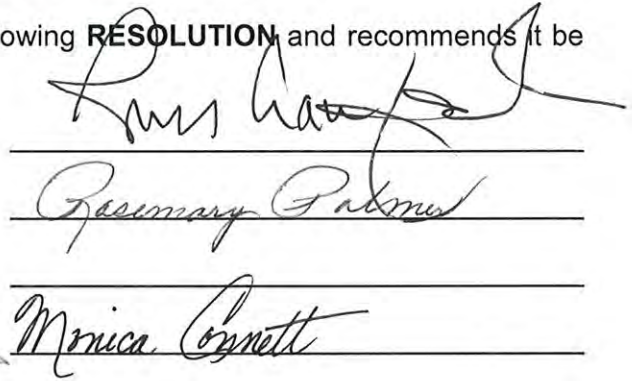 owing RESOLUTION and recommends it be
Russ
Rosemary Palmer
Monica Connett